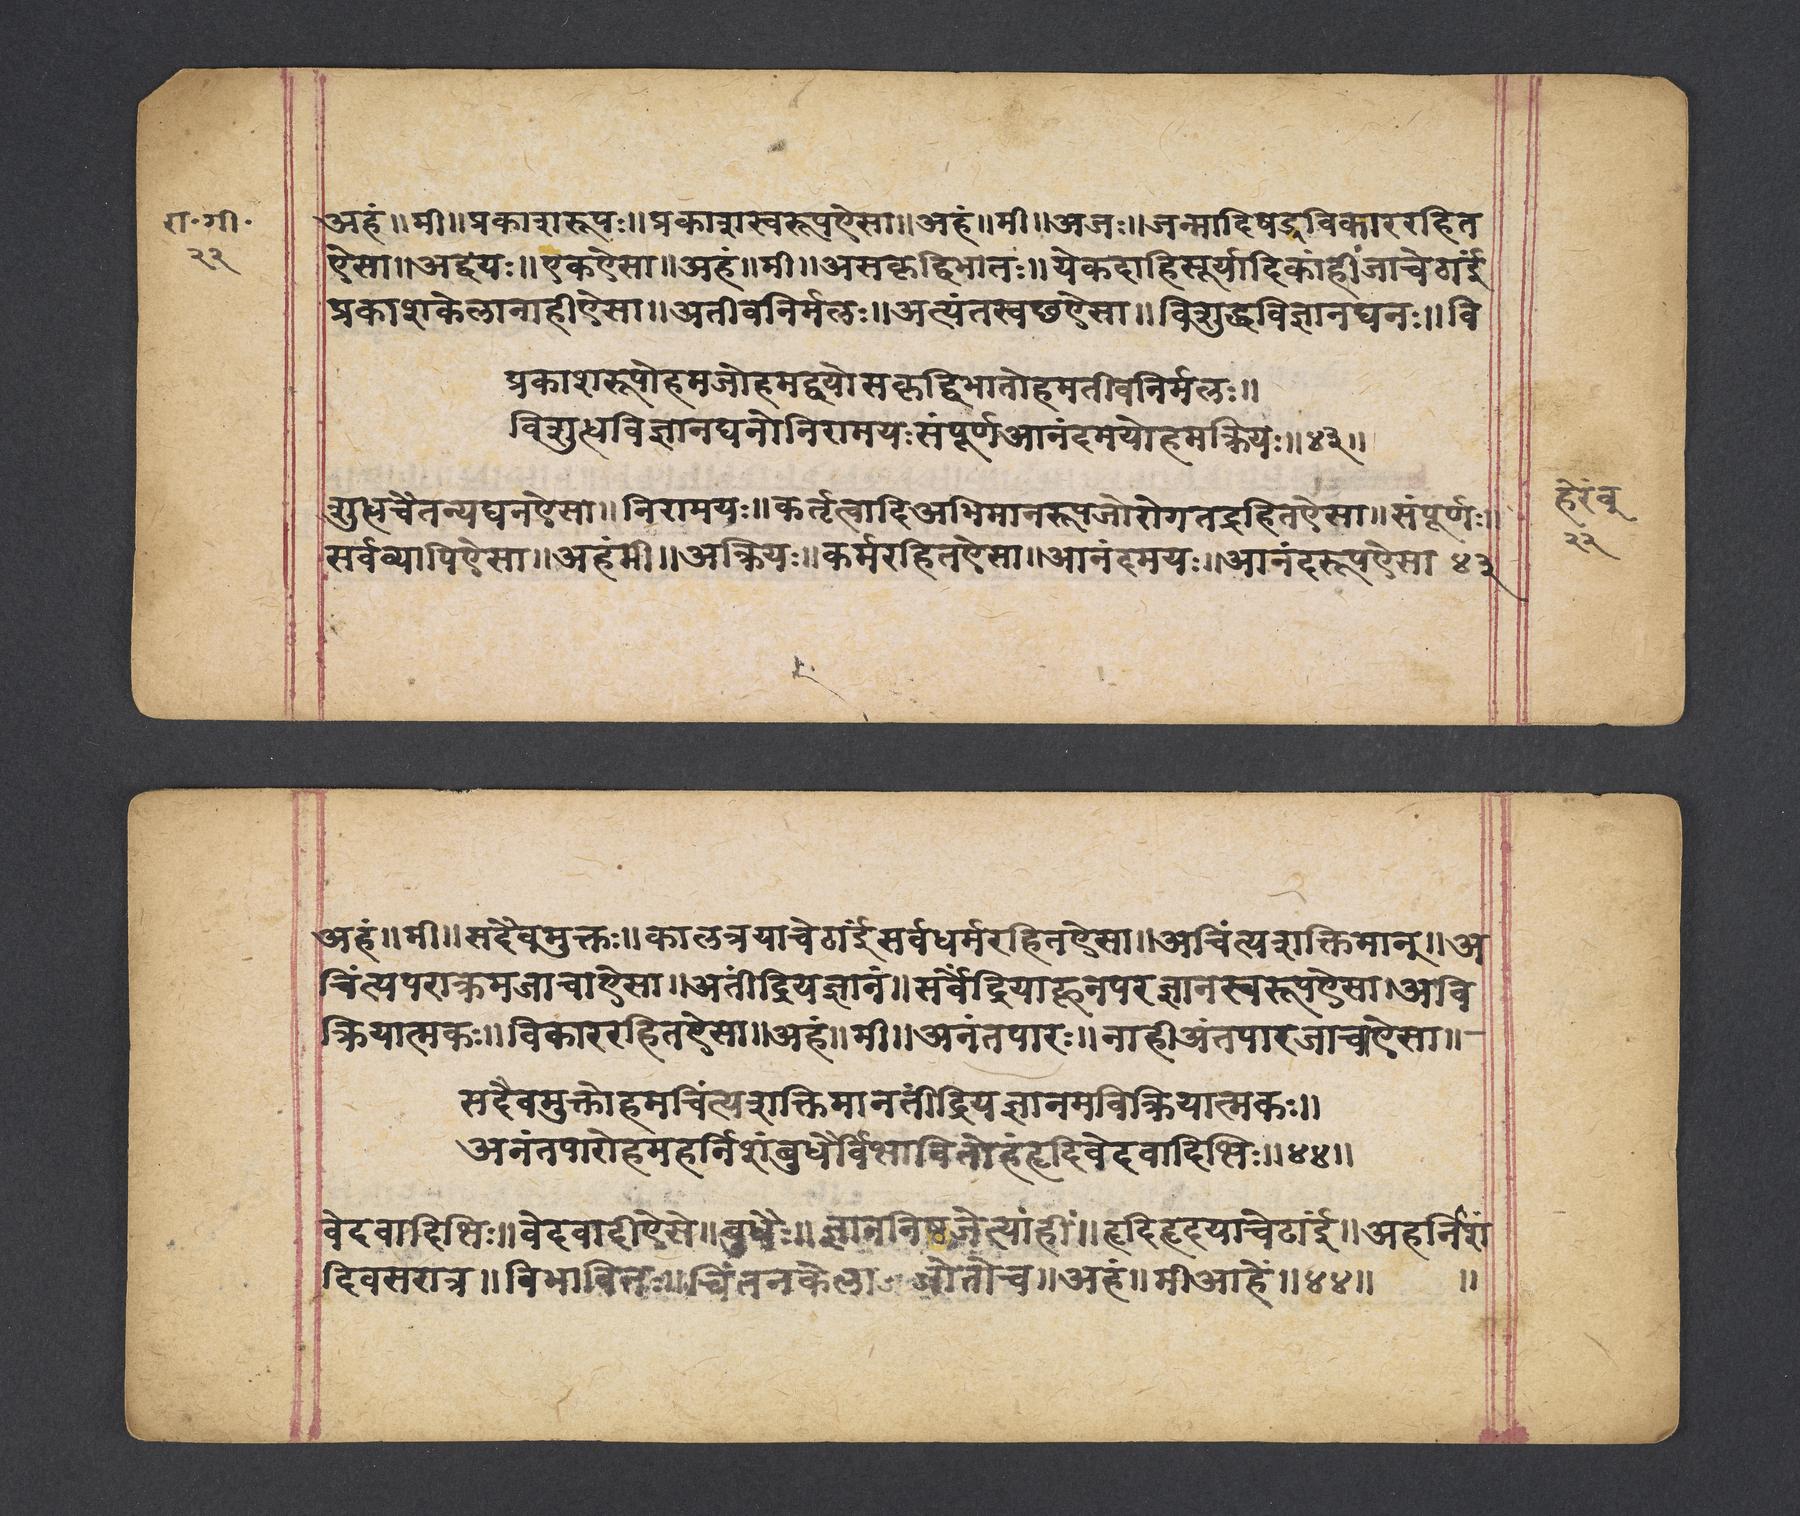 रा॰गी॰
२२
अहं॥मी॥प्रकाशरूपः॥प्रकाशस्वरूपऐसा॥अहं॥मी॥अजः॥जन्मादिषड्विकाररहित
ऐसा॥अद्वयः॥एकऐसा॥अहं॥मी॥असकृद्विभातः॥येकदाहिसूर्यादिकांहींजाचेठांई
प्रकाशकेलानाहीऐसा॥अतीवनिर्मलः॥अत्यंतस्वछऐसा॥विशुद्धविज्ञानघनः॥वि
प्रकाशरूपोहमजोहमद्वयोसकृद्विभातोहमतीवनिर्मलः॥
विशुधविज्ञानघनोनिरामयःसंपूर्णआनंदमयोहमक्रियः॥४३॥
शुधचैतन्यघनऐसा॥निरामयः॥कर्तृत्वादिअभिमानरूपजोरोगतद्रहितऐसा॥संपूर्णः॥
सर्वव्यापिऐसा॥अहंमी॥अक्रियः॥कर्मरहितऐसा॥आनंदमयः॥आनंदरूपऐसा ४३
हेरंबु
२२
अहं॥मी॥सदैवमुक्तः॥कालत्रयाचेठांईसर्वधर्मरहितऐसा॥अचिंत्यशक्तिमान्॥अ
चिंत्यपराक्रमजाचाऐसा॥अतींद्रियज्ञानं॥सर्वेंद्रियाहूनपरज्ञानस्वरूपऐसा।अवि
क्रियात्मकः॥विकाररहितऐसा॥अहं॥मी॥अनंतपारः॥नाहीअंतपारजाचाऐसा॥
सदैवमुक्तोहमचिंत्यशक्तिमानतींद्रियज्ञानमविक्रियात्मकः॥
अनंतपारोहमहर्निशंबुधैर्विभावितोहंहृदिवेदवादिभिः॥४४॥
वेदवादिभिः॥वेदवादीऐसे॥बुधैः॥ज्ञाननिष्ठजेत्यांहीं॥हृदिहृदयाचेठांई॥अहर्निशं
दिवसरात्र॥विभावितः॥चिंतनकेला जोतोच॥अहं॥मीआहें॥४४॥ ॥